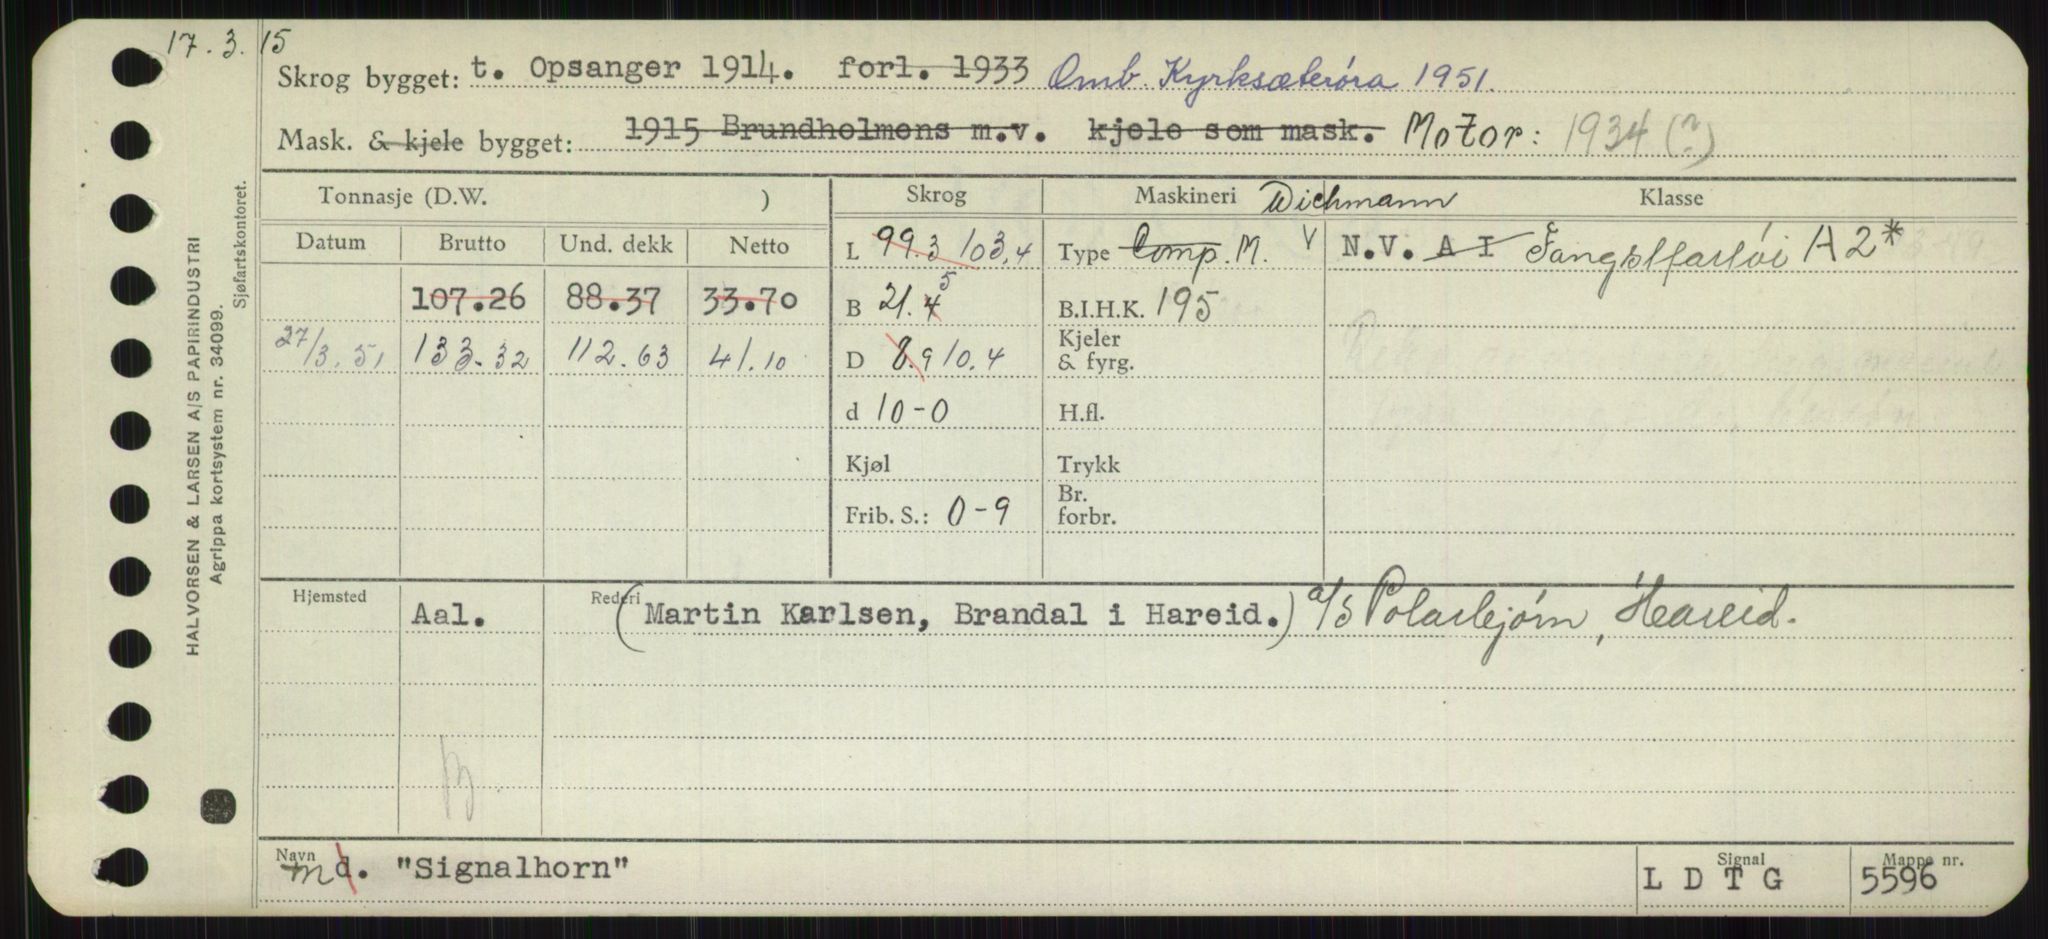 17. 3. 15
Skrog bygget: t. Opsanger 1914. forl. 1933 Omb. Kyrksæterøra 1951.
Mask. & kjele bygget: 1915 Brundholmens m.v. kjele som mask. Motor: 1934 (?)
Tonnasje (D.W. ) Skrog Maskineri Wichmann Klasse
Datum Brutto Und. dekk Netto L 99.3 103.4 Type Comp. M. V N.V. A I Fangstfartøi A2*
107.26 88.37 33.70 B 21.4 5 B.I.H.K. 195
27/3. 51 133.32 112.63 41.10 D 8.9 10.4 Kjeler & fyrg.
d 10-0 H.fl.
Kjøl Trykk
Frib. S.: 0-9 Br. forbr.
Hjemsted Aal. Rederi (Martin Karlsen, Brandal i Hareid.) a/s Polarbjørn, Hareid.
Navn m d. "Signalhorn" Signal L D T G Mappe nr. 5596
HALVORSEN & LARSEN A/S PAPIRINDUSTRI
Agrippa kortsystem nr. 34099.
Sjøfartskontoret.